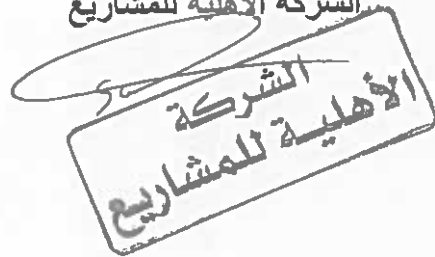 الشركة الأهلية للمشاريع
الشركة
الأهلية للمشاريع